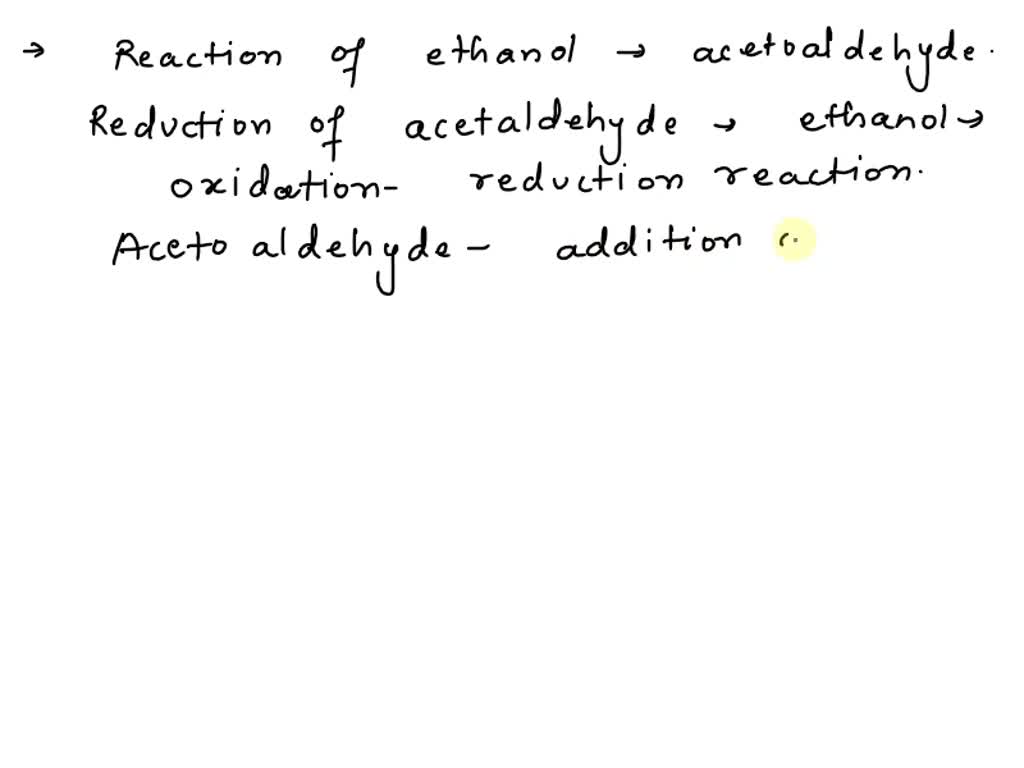 → Reaction of ethanol → acetoaldehyde.
Reduction of acetaldehyde → ethanol →
oxidation- reduction reaction.
Aceto aldehyde - addition